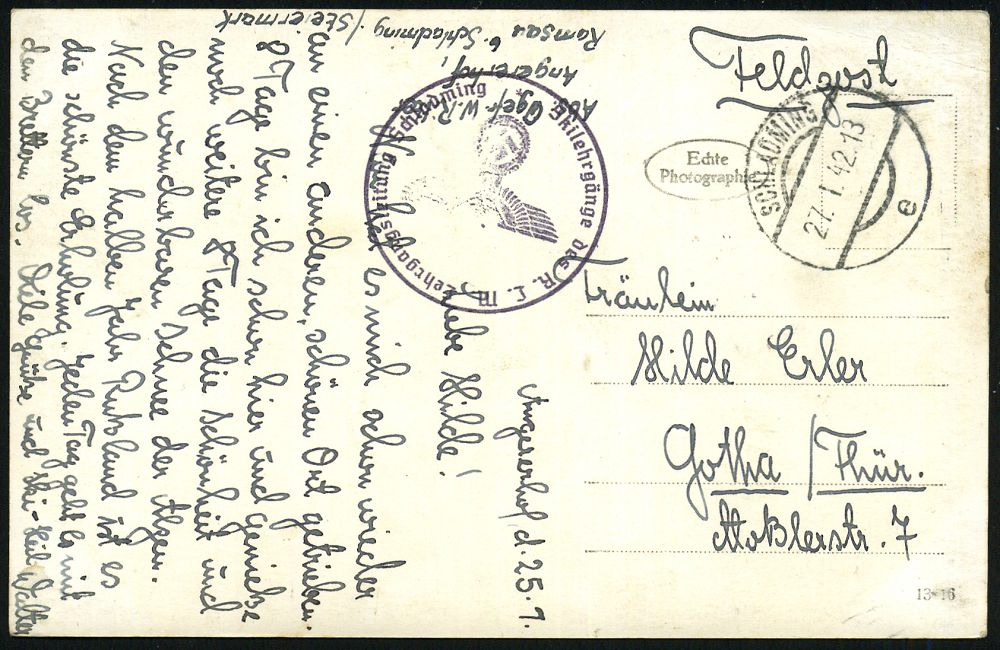 Feldpost
Echte
Photographie
SCHLADMING
27. I 42.13
e
Fräulein
Hilde Erler
Gotha / Thür.
Moßlerstr. 7
13 16
Skilehrgänge des R. L. M
Lehrgangsleitung Schladming
Abs. W.
Angererhof,
Ramsau b. Schladming /Steiermark
Angererhof, d. 25. 1.
Liebe Hilde!
es mich schon wieder
an einen anderen, schönen Ort getrieben.
8 Tage bin ich schon hier und genieße
noch weitere 8 Tage die Schönheit und
den wunderbaren Schnee der Alpen.
Nach dem halben Jahr Rußland ist es
die schönste Erholung. Jeden Tag geht es mit
den Brettern los. Viele Grüße und Ski-Heil Walter